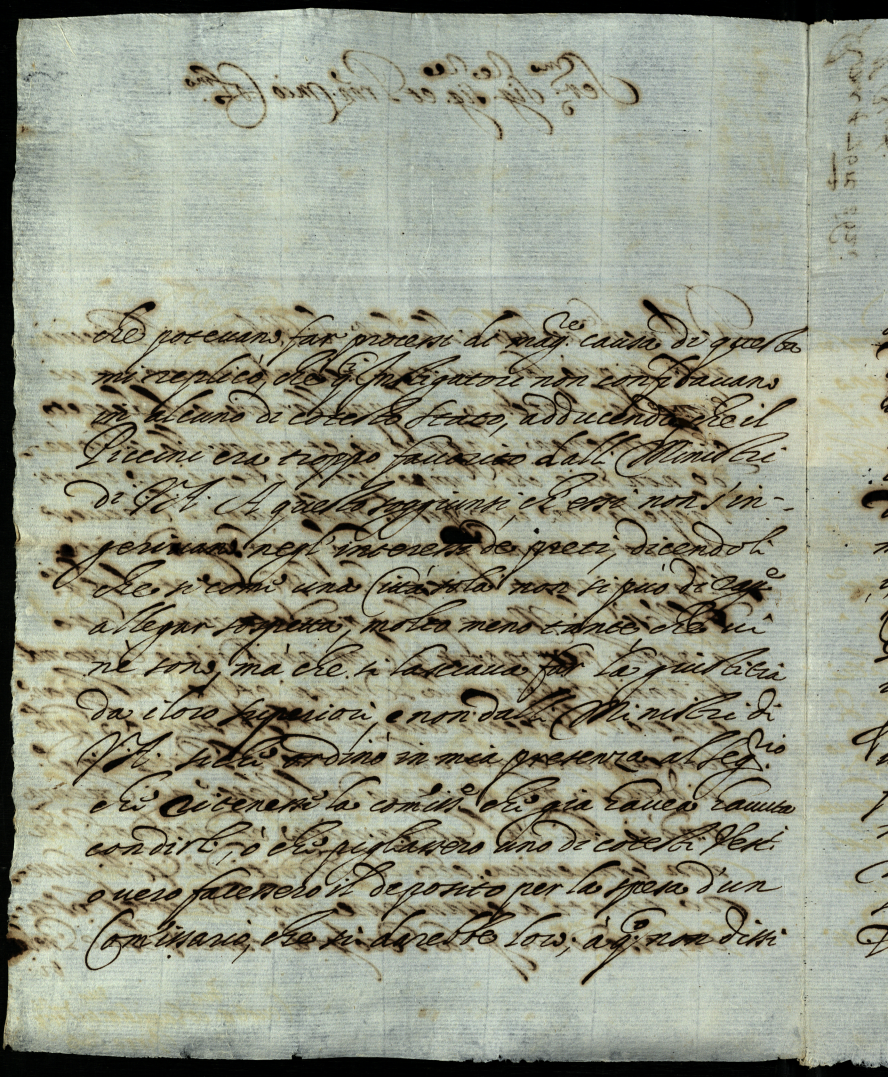 che potevano far processi di mag.re causa di questa
mi replicò, che q.ti Instigatori non confidavano
in alcuno di cotesto stato, adducendo che il
Piccini era troppo favorito dalli Ministri
di V.A. A questo soggiunsi, ch'essi non s'in-
gerivano negl'interessi de preti, dicendoli
che si come una Città sola non si può di
allegar sospetta, molto meno tante, che vi
nè sono, mà che si lasciava far la giustitia
da i loro superiori, e non dalli Ministri di
V.A. si ordinò in mia presenza al Seg.rio
che ritenesse la comiss.e che già havea havuta
con dirli, ò che pigliassero uno di cotesti Vesc.i
o vero facessero il deposito per la spesa d'un
Comissario, che si darebbe loro, à q.o non dissi